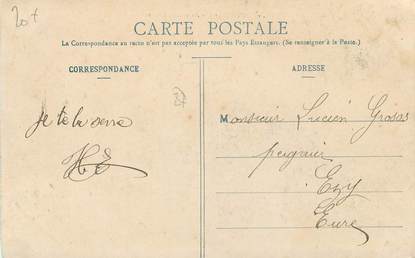 20 +
CARTE POSTALE
La Correspondance au recto n'est pas acceptée par tous les Pays Étrangers. (Se renseigner à la Poste.)
CORRESPONDANCE
ADRESSE
Je te la serre
Monsieur Lucien Grosos
peignier
Ezy
Eure